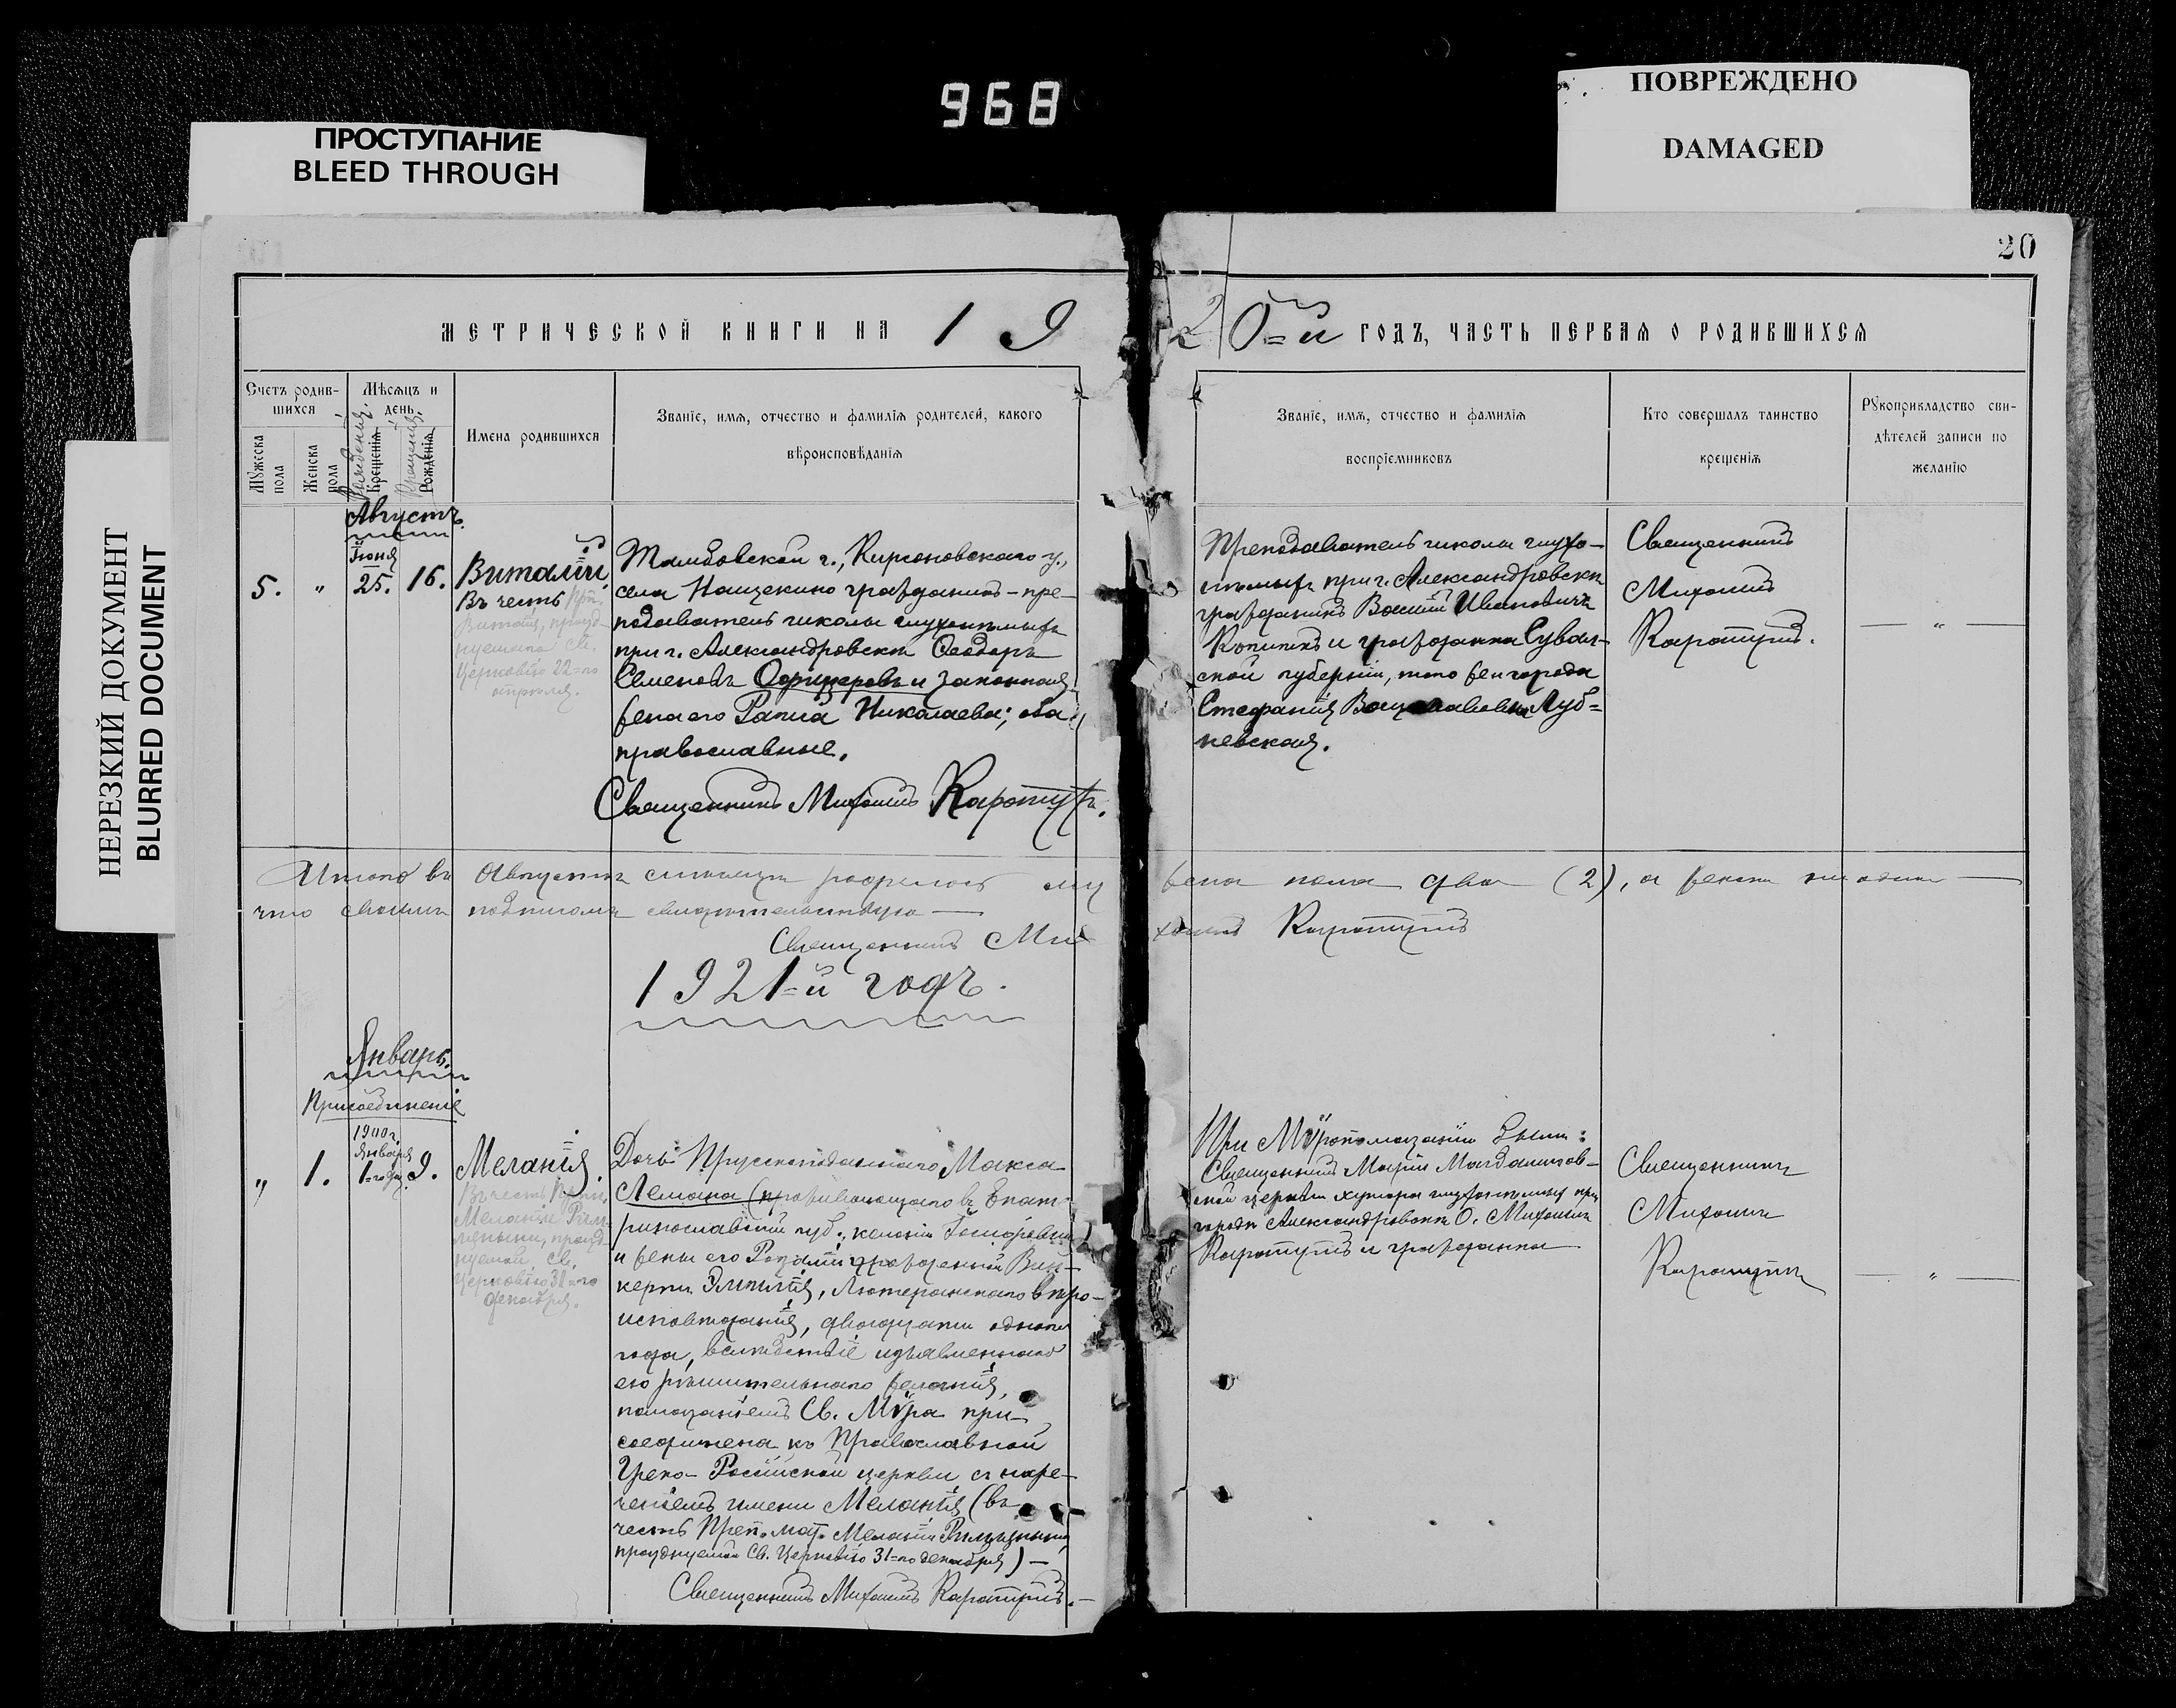 968
ПРОСТУПАНИЕ
BLEED THROUGH
ПОВРЕЖДЕНО
DAMAGED
НЕРЕЗКИЙ ДОКУМЕНТ
BLURRED DOCUMENT
20
МЕТРИЧЕСКОЙ КНИГИ НА 19
20=й ГОДЪ, ЧАСТЬ ПЕРВАЯ О РОДИВШИХСЯ
Счетъ родив-
шихся
Мужеска
пола
Женска
пола
Мѣсяцъ и
день
Рожденія.
Крещенія
Крещенія.
Рожденія
Имена родившихся
Званіе, имя, отчество и фамилія родителей, какого
вѣроисповѣданія
Званіе, имя, отчество и фамилія
воспріемниковъ
Кто совершалъ таинство
крещенія
Рукоприкладство сви-
дѣтелей записи по
желанію
Августъ.
5. " Іюня 25. 16.
Виталій
Въ честь
Виталія, празд-
нуемаго Св.
Церковію 22=го
апрѣля.
Тамбовской г., Кирсановскаго у.,
села Нащекино гражданинъ - пре-
подаватель школы глухонѣмыхъ
при г. Александровскѣ Ѳеодоръ
Семеновъ Офицеровъ и законная
жена его Раиса Николаева; оба
православные.
Священникъ Михаилъ
Преподаватель школы глухо-
нѣмыхъ при г. Александровскѣ
гражданинъ Василій Ивановичъ
и гражданка Сувал-
ской губерніи, того же города
Стефанія
невская.
Священникъ
Михаилъ
— " —
Итого въ Августѣ мѣсяцѣ родилось му
жена пола два (2), а женска ни одна —
что своимъ подписомъ свидѣтельствую —
Священникъ Ми
хаилъ
1921=й годъ.
Январь.
Присоединеніе
" 1. 1900 г. Января 1=го дня 9.
Меланія.
Въ честь Преп.
Меланіи Рим-
ляныни, празд-
нуемой Св.
Церковію 31=го
декабря.
Дочь Прусскоподданнаго Макса
Лемана (проживающаго въ Екате-
ринославской губ., колоніи
и жены его Розаліи урожденной Вин-
кертъ Эмилія, Лютеранскаго вѣро-
исповѣданія, двадцати одного
года, вслѣдствіе изъявленнаго
ею рѣшительнаго желанія,
помазаніемъ Св. Мѵра при-
соединена къ Православной
Греко-Россійской церкви съ наре-
ченіемъ имени Меланія (въ
честь Преп. мат. Меланіи Римляныни,
празднуемой Св. Церковію 31=го декабря) —
Священникъ Михаилъ
При Мѵропомазаніи были:
Священникъ Маріи Магдалинов-
ской церкви хутора глухонѣмыхъ при
городѣ Александровскѣ О. Михаилъ
и гражданка —
Священникъ
Михаилъ
— " —